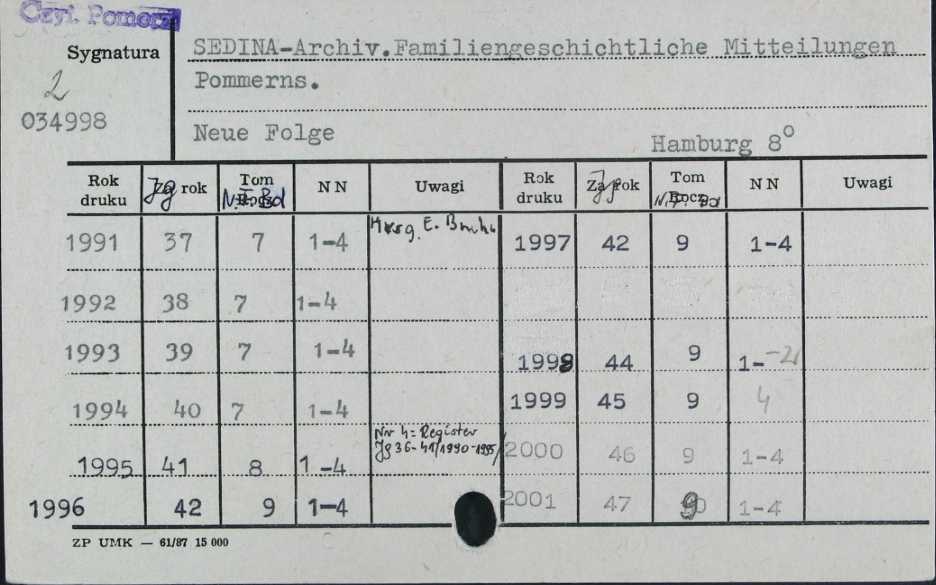 Czyt. Pomorza
Sygnatura
SEDINA-Archiv.Familiengeschichtliche Mitteilungen
2
Pommerns.
034998
Neue Folge
Hamburg 8°
Rok druku Jg rok Tom N.F. Bd NN Uwagi Rok druku Jg rok Tom N.F. Bd Rocz. NN Uwagi
1991 37 7 1-4 Hrsg. E. 1997 42 9 1-4
1992 38 7 1-4
1993 39 7 1-4 1998 44 9 1--2
1994 40 7 1-4 1999 45 9 4
1995 41 8 1-4 Nr 4 = Register Jg 36-41/1990-1995/ 2000 46 9 1-4
1996 42 9 1-4 2001 47 9 1-4
ZP UMK — 61/87 15 000